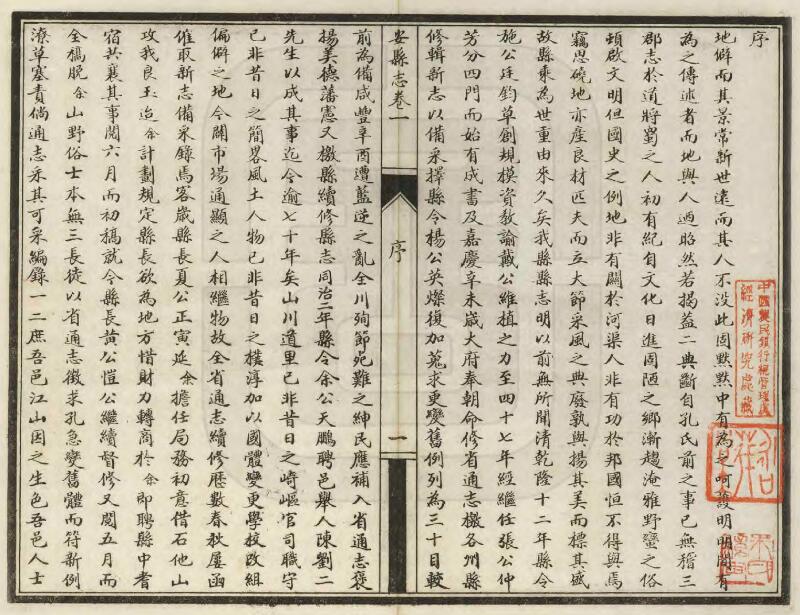 序
地僻而其景常新世遠而其人不没此固黙黙中有為之呵護明明間有
為之傳述者而地與人迺昭然若揭蓋二典斷自孔氏前之事已無稽三
郡志於道將蜀之人初有紀自文化日進固陋之鄉漸趨淹雅野蠻之俗
頓啟文明但國史之例地非有關於河渠人非有功於邦國恒不得與焉
竊思磽地亦產良材匹夫而立大節采風之典廢孰與揚其美而標其盛
故縣乘為世重由來久矣我縣縣志明以前無所聞清乾隆十二年縣令
施公廷鈞草創規模資教諭戴公維植之力至四十七年經繼任張公仲
芳分四門而始有成書及嘉慶辛未歲大府奉朝命修省通志檄各州縣
修輯新志以備采擇縣令楊公英燦復加蒐求更變舊例列為三十目較
安縣志卷一
序
一
前為備咸豐辛酉遭藍逆之亂全川殉節死難之紳民應補入省通志褒
揚美德藩憲又檄縣續修縣志同治二年縣令余公天鵬聘邑舉人陳劉二
先生以成其事迄今逾七十年矣山川道里已非昔日之崎嶇官司職守
已非昔日之簡畧風土人物已非昔日之樸淳加以國體變更學校改組
偏僻之地今闢市場通顯之人相繼物故全省通志續修歷數春秋屢函
催取新志備采錄焉客歲縣長夏公正寅延余擔任局務初意借石他山
攻我良玉迨余計劃規定縣長欲為地方惜財力轉商於余即聘縣中耆
宿共襄其事閱六月而初稿就今縣長黃公愷公繼續督修又閱五月而
全稿脫余山野俗士本無三長徒以省通志徵求孔急變舊體而符新例
潦草塞責倘通志采其可采編錄一二庶吾邑江山因之生色吾邑人士
中國農民銀行總管理處
經濟研究處藏